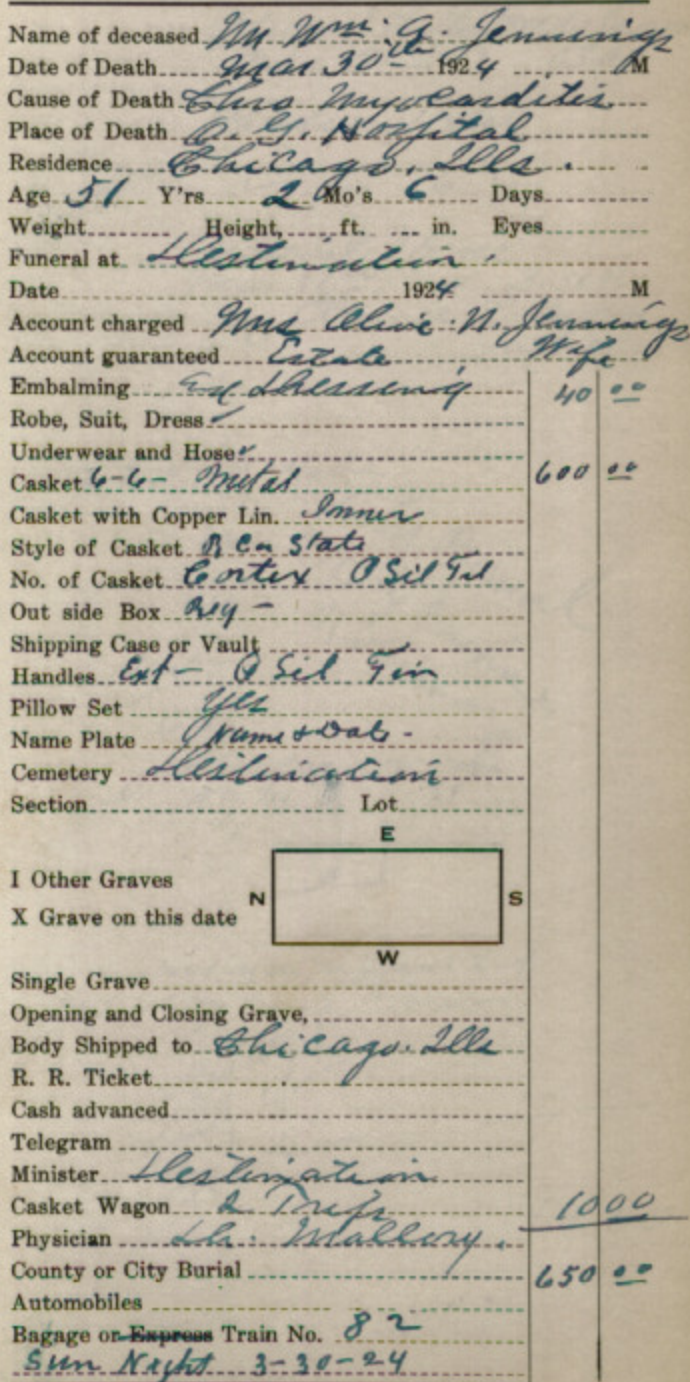 Name of deceased Mr Wm. G. Jennings
Date of Death Mar 30th 1924 M
Cause of Death Chro Myocarditis
Place of Death O. G. Hospital
Residence Chicago, Ills.
Age 51 Y'rs 2 Mo's 6 Days
Weight Height, ft. in. Eyes
Funeral at Destination
Date 1924 M
Account charged Mrs Olive N. Jennings
Account guaranteed Estate Wife
Embalming & Dressing 40 00
Robe, Suit, Dress ✓
Underwear and Hose ✓
Casket 6-6- Metal 600 00
Casket with Copper Lin. Inner
Style of Casket State
No. of Casket Cortex Sil
Out side Box Reg -
Shipping Case or Vault
Handles Ext - Sil
Pillow Set Yes
Name Plate Name & Date -
Cemetery Destination
Section Lot
E
I Other Graves
N S
X Grave on this date
W
Single Grave
Opening and Closing Grave,
Body Shipped to Chicago. Ills
R. R. Ticket
Cash advanced
Telegram
Minister Destination
Casket Wagon 2 Trips 10 00
Physician Dr. Mallory.
County or City Burial 650 00
Automobiles
Bagage or Express Train No. 82
Sun Night 3-30-24